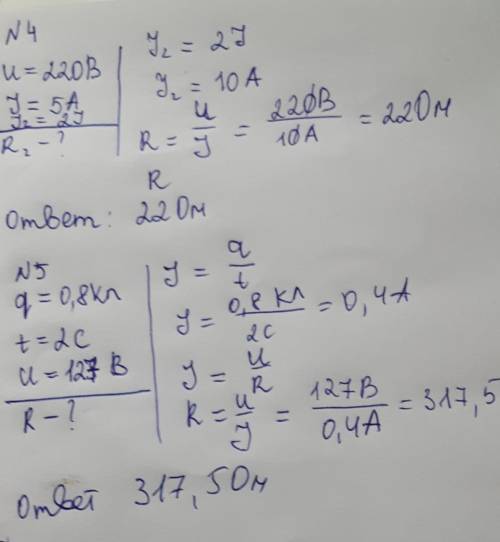 N4
U = 220В
J = 5А
J₂ = 2J
R₂ - ?
J₂ = 2J
J₂ = 10А
R = U/J = 220В/10А = 22Ом
R
Ответ: 22Ом
N5
q = 0,8Кл
t = 2С
U = 127 В
R - ?
J = q/t
J = 0,8 Кл/2С = 0,4А
J = U/R
R = U/J = 127В/0,4А = 317,5
Ответ 317,5Ом